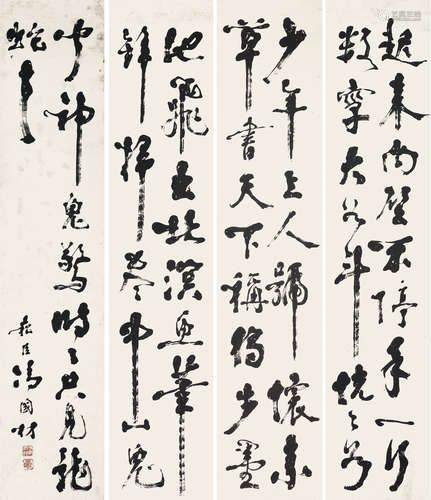 少年上人號懷素
草書天下稱獨步墨
池飛出北溟魚筆
鋒掃盡中山兔
起來向壁不停手一行
數字大如斗恍々如
聞神鬼驚時々只見龍
蛇走
馮國材